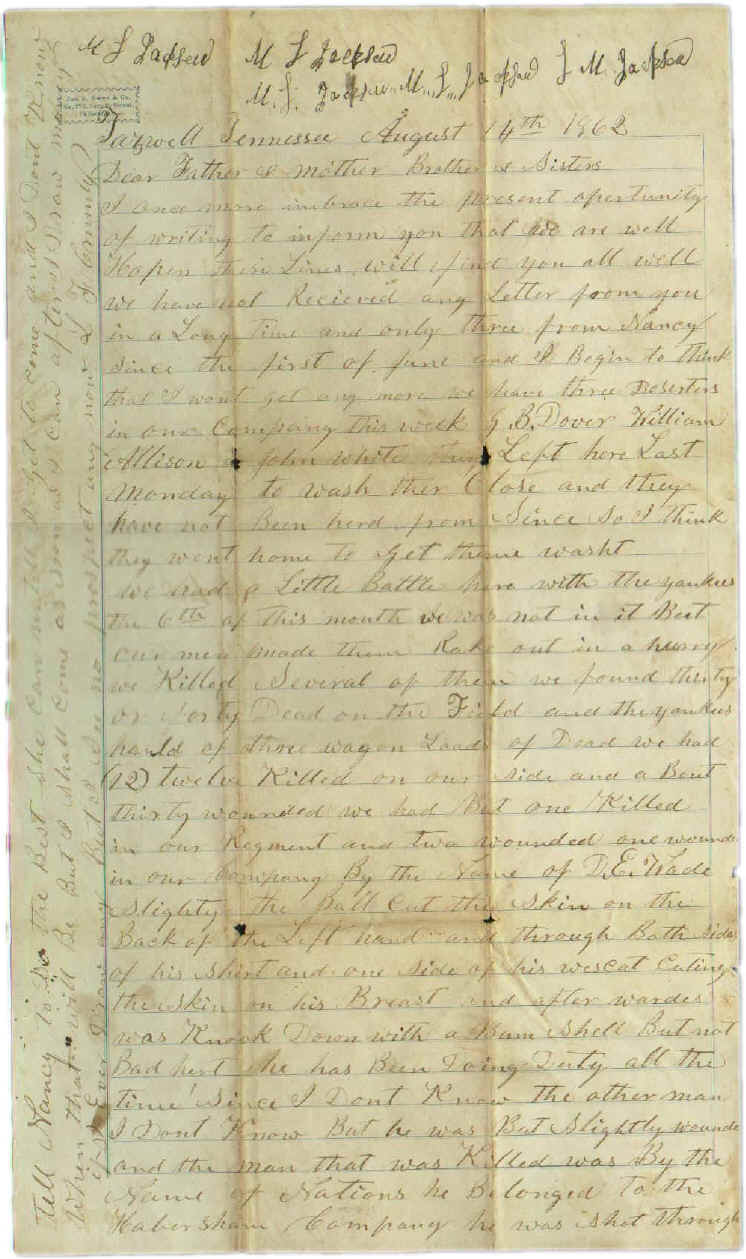 M L Jackson M L Jackson
M. L. Jackson M. L. Jackson L M. Jackson
Tazwell Tennessee August 14th 1862
Dear Father & mother Brother & Sisters
I once more imbrace the present opertunity
of writing to inform you that we are well
Hapen their Lines will find you all well
we have not Recieved any Letter from you
in a Long time and only three from Nancy
since the first of June and I Begin to think
that I wont get any more we have three Deserters
in our Company this week G. B. Dover William
Allison & John White they Left here Last
Monday to wash ther Close and they
have not Been herd from Since So I think
they went home to Get theme washt
we had a Little Battle here with the yankees
the 6th of this month we was not in it But
our men made them Rake out in a hurry
we Killed Several of them we found thirty
or Forty Dead on the Field and the yankees
hauld of three wagon Loads of Dead we had
(12) twelve Killed on our side and a Bout
thirty wounded we had But one Killed
in our Regment and two wounded one wounde
in our Company By the Name of D. E. Wade
Slighty the Ball Cut the Skin on the
Back of the Left hand and through Both sides
of his Shirt and one side of his wescat Cuting
the Skin on his Breast and after wardes
was Knock Down with a Bum Shell But not
Bad hert he has Been Doing Duty all the
time Since I Dont Know the other man
I Dont Know But he was But Slightly wounde
and the man that was Killed was By the
Name of Nations he Belonged to the
Habersham Company he was shot through
Tell Nancy to Do the Best she can untill I get to come and I Dont Know
When that will Be But I shall come as soon as I can after I Draw money
if I Ever Draw any But I See no prospect any now